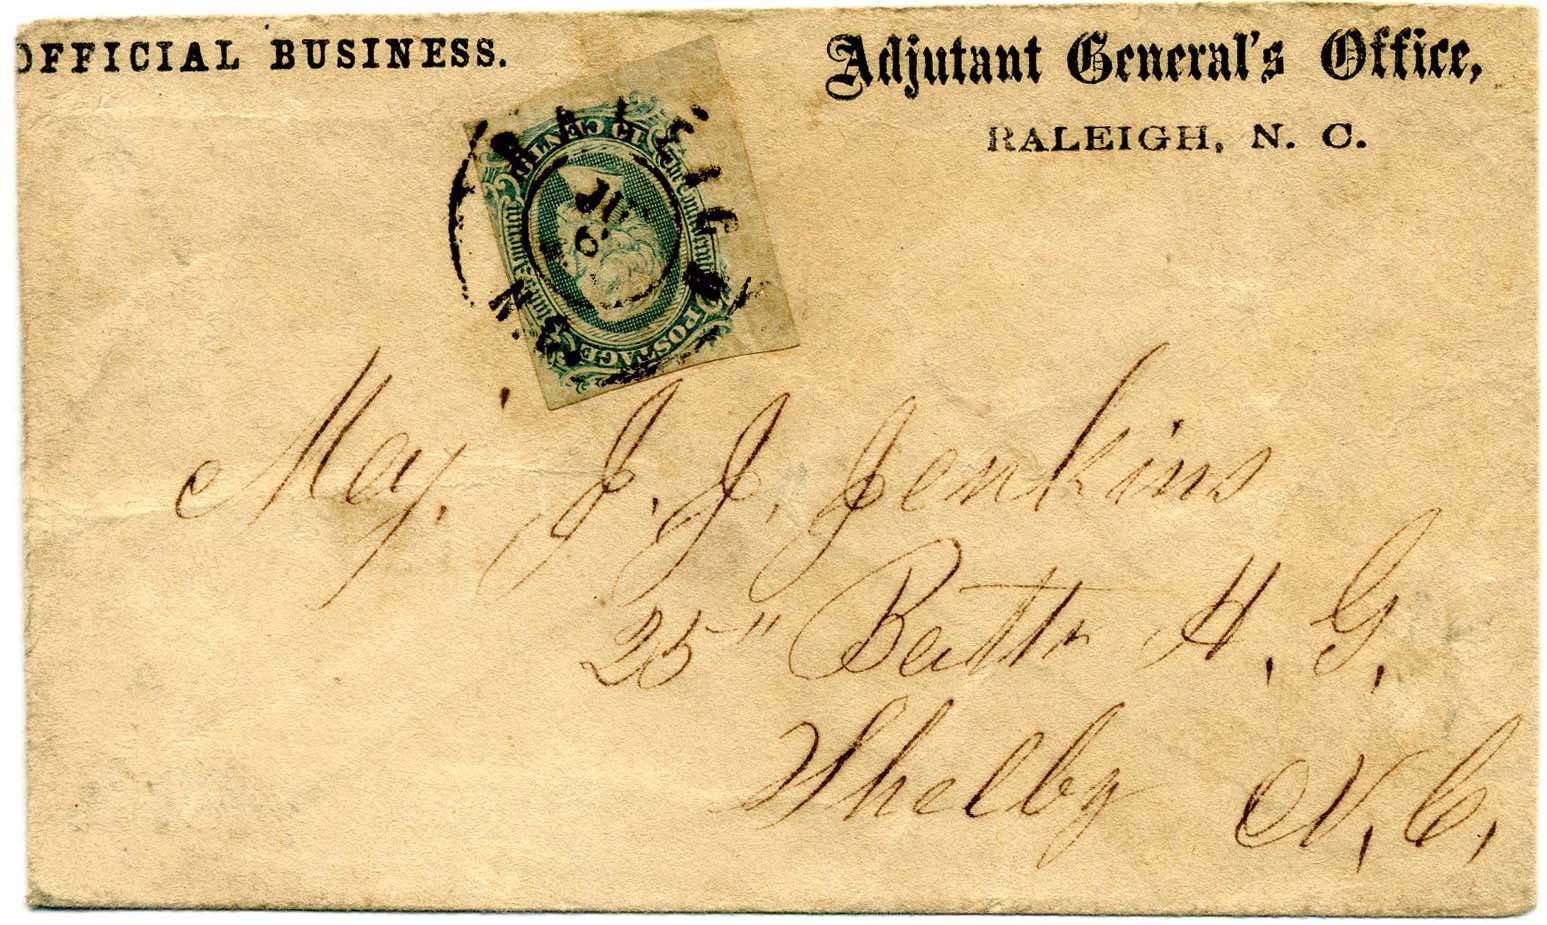 OFFICIAL BUSINESS.
Adjutant General's Office,
RALEIGH, N. C.
RALEIGH
JU
N.
TEN CENTS
POSTAGE
Maj. J. J. Jenkins
25" Battn H. G.
Shelby N. C.